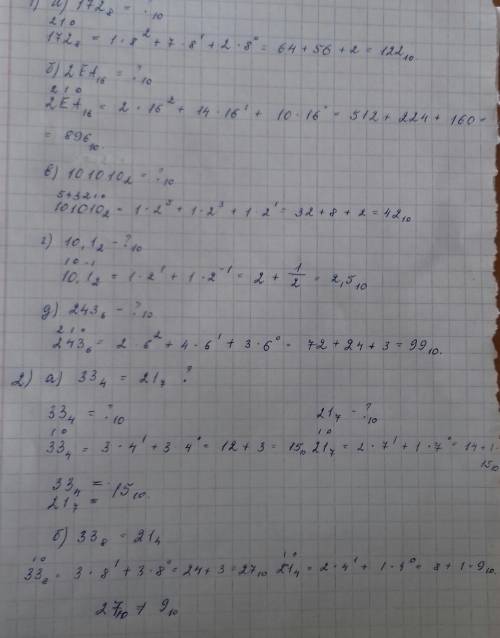 1) а) 172₈ = ?₁₀
2 1 0
172₈ = 1·8² + 7·8¹ + 2·8⁰ = 64 + 56 + 2 = 122₁₀
б) 2EA₁₆ = ?₁₀
2 1 0
2EA₁₆ = 2·16² + 14·16¹ + 10·16⁰ = 512 + 224 + 160 =
= 896₁₀
в) 101010₂ = ?₁₀
5 4 3 2 1 0
101010₂ = 1·2⁵ + 1·2³ + 1·2¹ = 32 + 8 + 2 = 42₁₀
г) 10,1₂ - ?₁₀
1 0 -1
10,1₂ = 1·2¹ + 1·2⁻¹ = 2 + 1/2 = 2,5₁₀
д) 243₆ - ?₁₀
2 1 0
243₆ = 2·6² + 4·6¹ + 3·6⁰ = 72 + 24 + 3 = 99₁₀.
2) а) 33₄ = 21₇ ?
33₄ = ?₁₀ 21₇ - ?₁₀
1 0 1 0
33₄ = 3·4¹ + 3·4⁰ = 12 + 3 = 15₁₀ 21₇ = 2·7¹ + 1·7⁰ = 14 + 1 =
15₁₀
33₄ =
21₇ = 15₁₀.
б) 33₈ = 21₄
1 0 1 0
33₈ = 3·8¹ + 3·8⁰ = 24 + 3 = 27₁₀ 21₄ = 2·4¹ + 1·4⁰ = 8 + 1 = 9₁₀.
27₁₀ ≠ 9₁₀